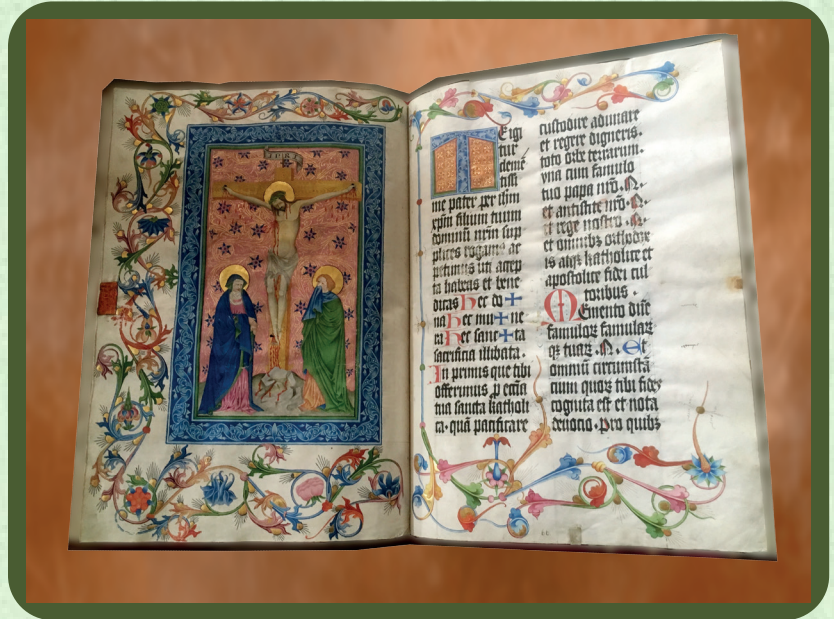 INRI
TEigi
tur
clemē
tissi
me pater per ihm
xpm filium tuum
dominū nrm sup
plices rogamus ac
petimus uti accep
ta habeas et bene
dicas hec do+
na hec mu+ne
ra hec sanc+ta
sacrificia illibata.
In primis que tibi
offerimus p eccīa
tua sancta katholi
ca. quā pacificare
custodire adunare
et regere digneris.
toto orbe terrarum.
vna cum famulo
tuo papa nr̄o .N.
et antistite nr̄o .N.
et rege nostro .N.
et omnibꝫ orthodox
is atqꝫ katholice et
apostolice fidei cul
toribus.
Memento dn̄e
famuloꝝ famulaꝝ
qꝫ tuaꝝ .N. Et
omniū circumstā
cium quoꝝ tibi fides
cognita est et nota
deuocio. pro quibꝫ